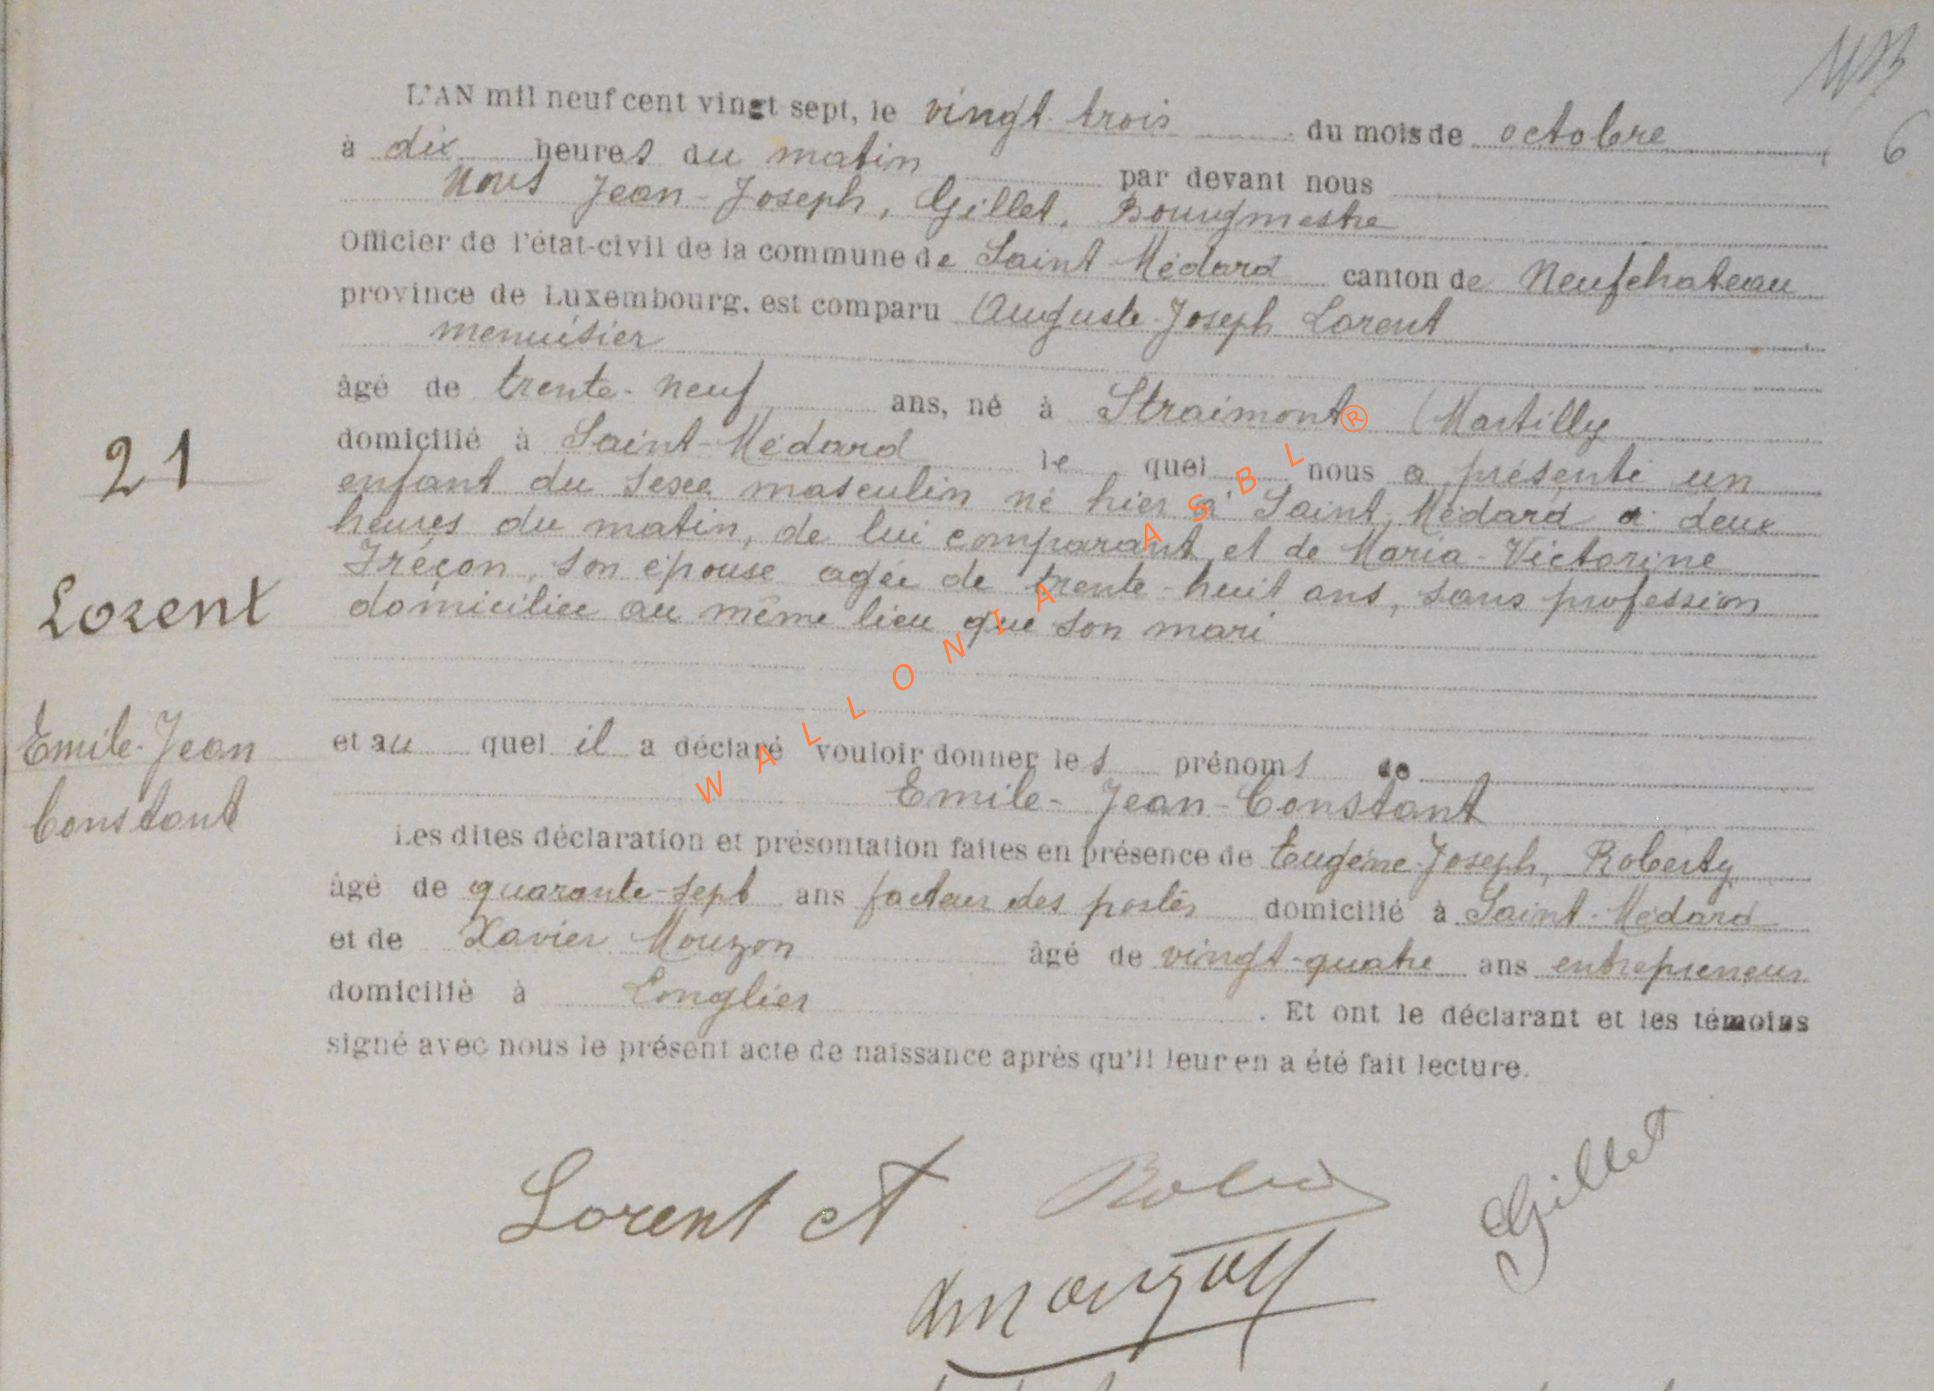 L'AN mil neuf cent vingt sept, le vingt trois du mois de octobre
6
à dix heures du matin par devant nous
Nous Jean-Joseph, Gillet, Bourgmestre
Officier de l'état-civil de la commune de Saint Médard canton de Neufchateau
province de Luxembourg, est comparu Auguste-Joseph Lorent
menuisier
âgé de trente-neuf ans, né à Straimont (Martilly
domicilié à Saint-Médard le quel nous a présenté un
21
enfant du sexe masculin né hier à Saint, Médard à deux
heures du matin, de lui comparant, et de Maria-Victorine
Fréçon, son épouse agée de trente-huit ans, sans profession
Lorent
domiciliée au même lieu que son mari
WALLONIA ASBL ®
Emile-Jean
Constant
et au quel il a déclaré vouloir donner les prénoms de
Emile-Jean-Constant
Les dites déclaration et présentation faites en présence de Eugène-Joseph, Roberty
âgé de quarante-sept ans facteur des postes domicilié à Saint-Médard
et de Xavier Mouzon âgé de vingt-quatre ans entrepreneur
domicilié à Longlier . Et ont le déclarant et les témoins
signé avec nous le présent acte de naissance après qu'il leur en a été fait lecture.
Lorent
Gillet
Mouzon